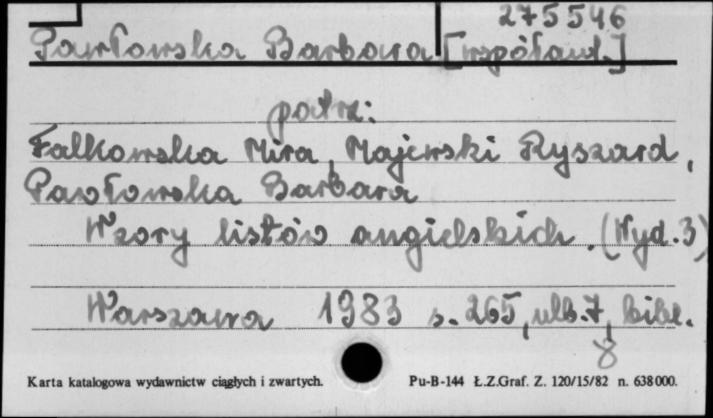 275546
Pawłowska Barbara [współaut.]
patrz:
Falkowska Mira, Majewski Ryszard,
Pawłowska Barbara
Wzory listów angielskich. (Wyd. 3)
Warszawa 1983 s. 265, ulb. 7, bibl.
8
Karta katalogowa wydawnictw ciągłych i zwartych. Pu-B-144 Ł.Z.Graf. Z. 120/15/82 n. 638000.